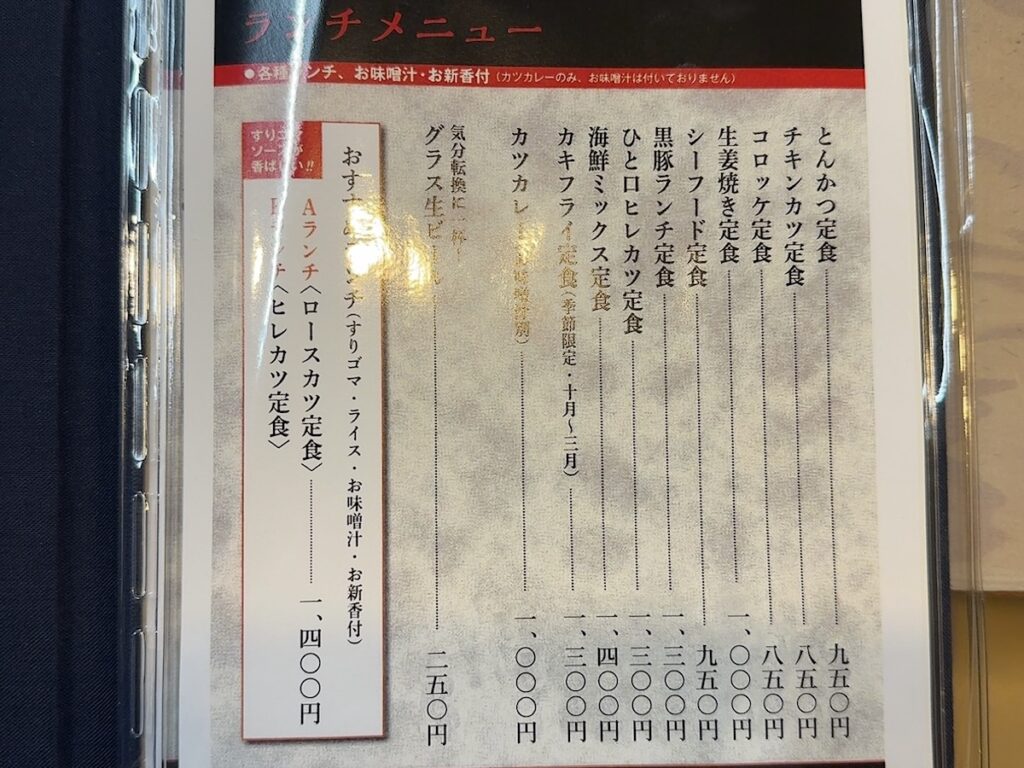 ランチメニュー
●各種ランチ、お味噌汁・お新香付(カツカレーのみ、お味噌汁は付いておりません)
とんかつ定食 九五〇円
チキンカツ定食 八五〇円
コロッケ定食 八五〇円
生姜焼き定食 一、〇〇〇円
シーフード定食 九五〇円
黒豚ランチ定食 一、三〇〇円
ひと口ヒレカツ定食 一、三〇〇円
海鮮ミックス定食 一、四〇〇円
カキフライ定食(季節限定・十月〜三月) 一、三〇〇円
カツカレー 一、〇〇〇円
気分転換に一杯
グラス生ビール 二五〇円
おすすめランチ(すりゴマ・ライス・お味噌汁・お新香付)
すりゴマ
ソースが
香ばしい!!
Aランチ〈ロースカツ定食〉 一、四〇〇円
Bランチ〈ヒレカツ定食〉